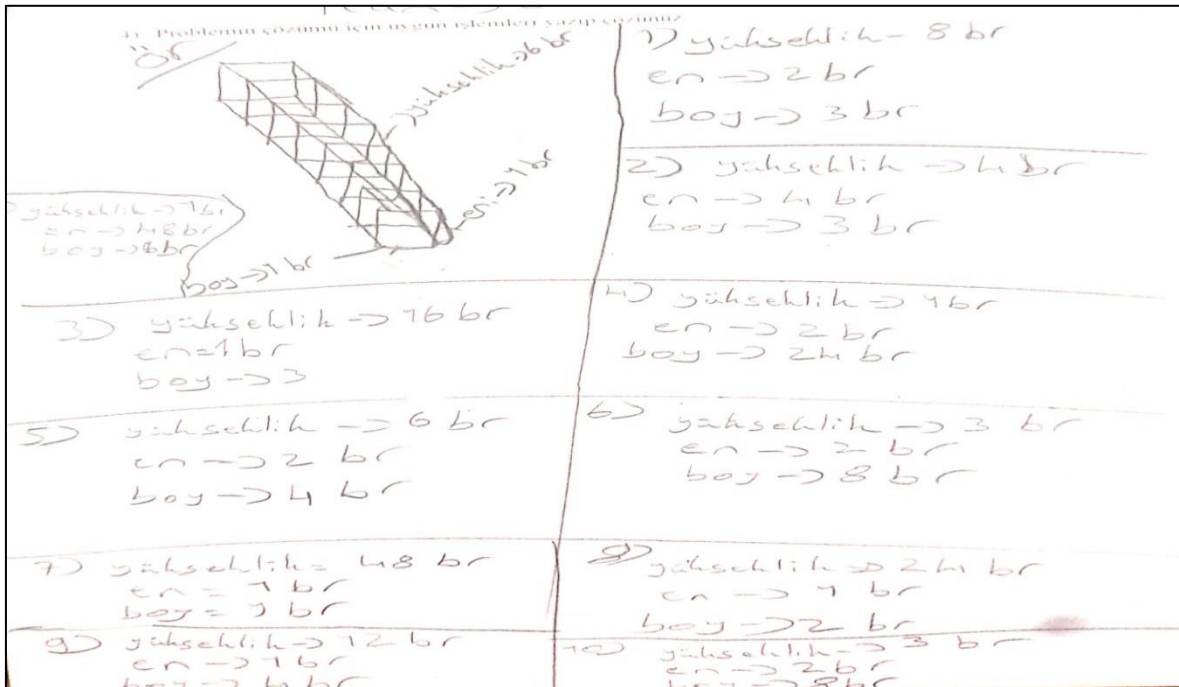 4) Problemin çözümü için uygun işlemleri yazıp çözünüz
ör
yükseklik -> 6 br
en: -> 1 br
boy -> 1 br
yükseklik -> 1 br
en -> 48 br
boy ->
1) yükseklik - 8 br
en -> 2 br
boy -> 3 br
2) yükseklik -> 4 br
en -> 4 br
boy -> 3 br
3) yükseklik -> 16 br
en=1br
boy -> 3
4) yükseklik -> 1br
en -> 2 br
boy -> 24 br
5) yükseklik -> 6 br
en -> 2 br
boy -> 4 br
6) yükseklik -> 3 br
en -> 2 br
boy -> 8 br
7) yükseklik = 48 br
en = 1 br
boy = 1 br
8) yükseklik -> 24 br
en -> 1 br
boy -> 2 br
9) yükseklik -> 12 br
en -> 1 br
boy -> 4 br
10) yükseklik -> 3 br
en -> 2br
boy -> 8br